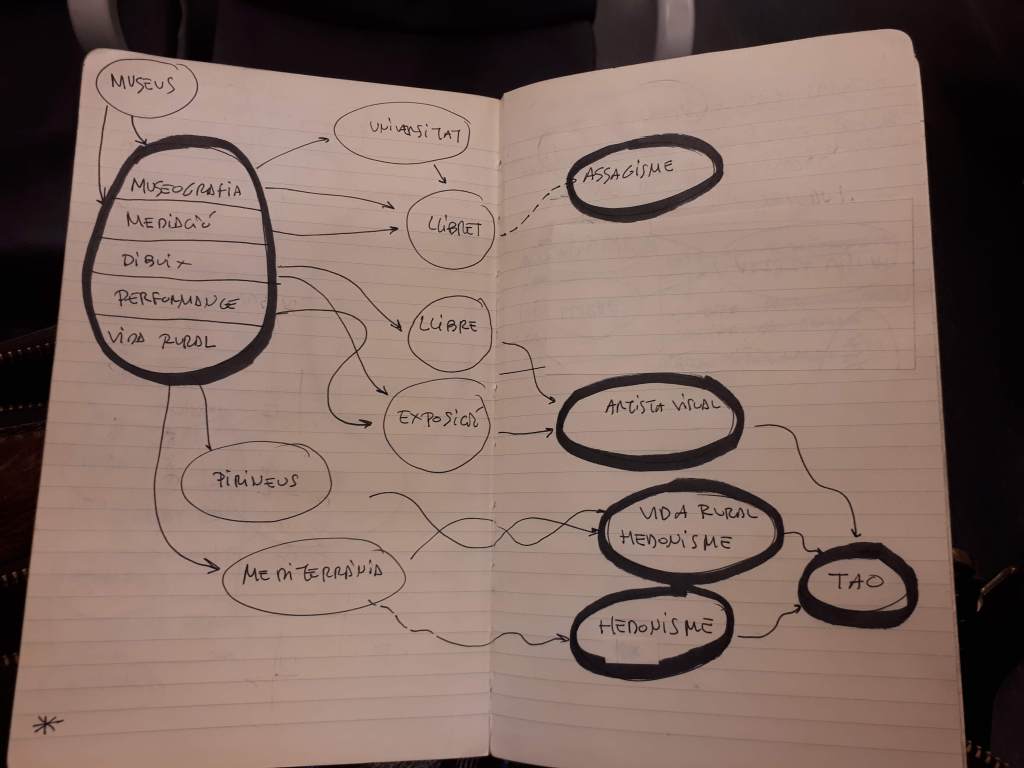 MUSEUS
MUSEOGRAFIA
MEDIACIÓ
DIBUIX
PERFORMANCE
VIDA RURAL
UNIVERSITAT
LLIBRET
LLIBRE
EXPOSICIÓ
PIRINEUS
MEDITERRÀNIA
ASSAGISME
ARTISTA VISUAL
VIDA RURAL
HEDONISME
HEDONISME
TAO
*